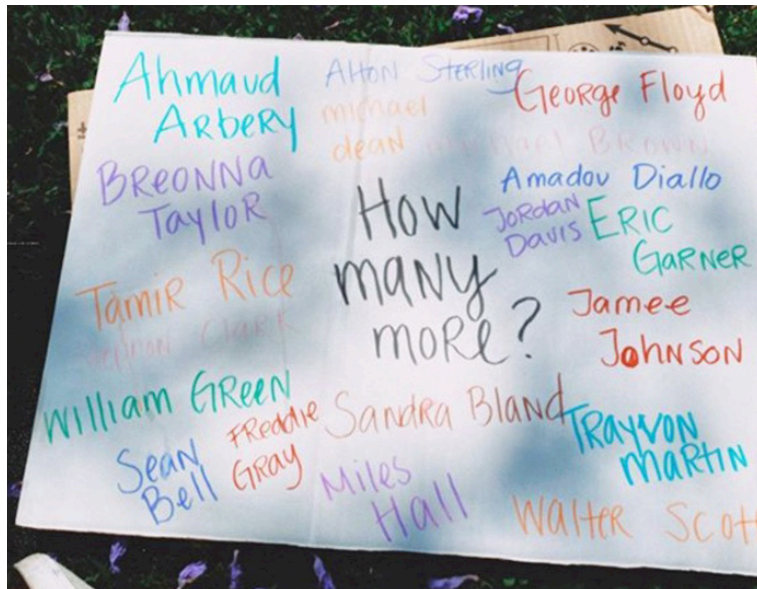 Ahmaud
Arbery
Alton Sterling
George Floyd
michael
dean
michael Brown
Breonna
Taylor
Amadou Diallo
Jordan
Davis
Eric
Garner
How
many
more?
Tamir Rice
Clark
Jamee
Johnson
William Green
Freddie
Gray
Sandra Bland
Trayvon
Martin
Sean
Bell
Miles
Hall
Walter Scott